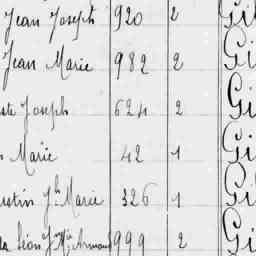 Jean Joseph 920 2 Gi
Jean Marie 982 2 Gi
Joseph 624 2 Gi
Marie 42 1 Gi
Jh Marie 326 1 Gi
Léon Armand 999 2 Gi